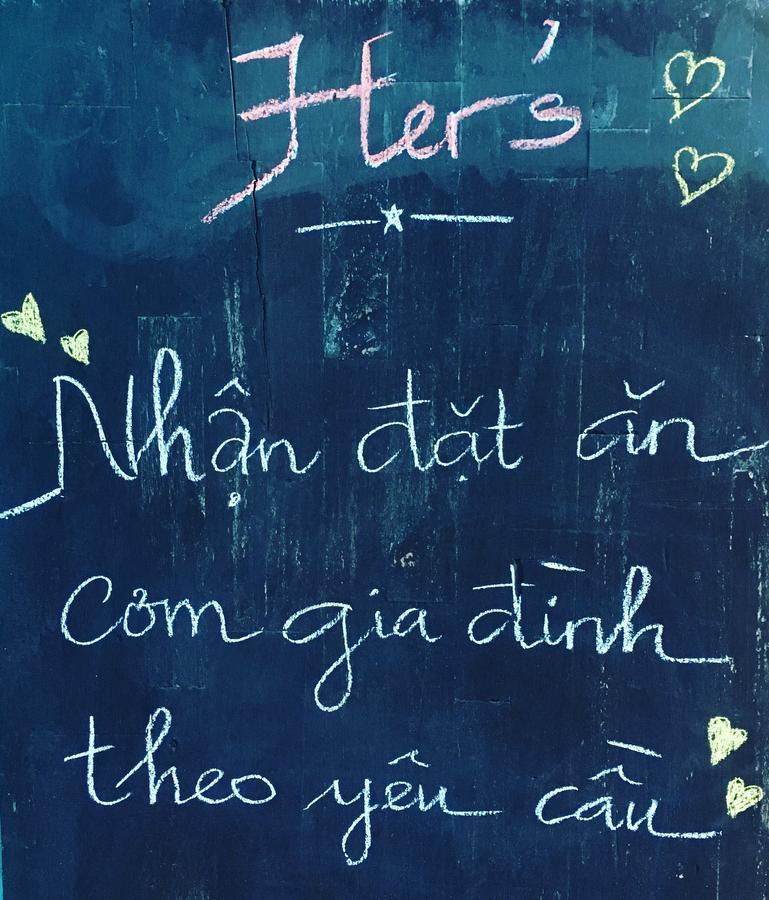 Her's
Nhận đặt ăn
Cơm gia đình
theo yêu cầu